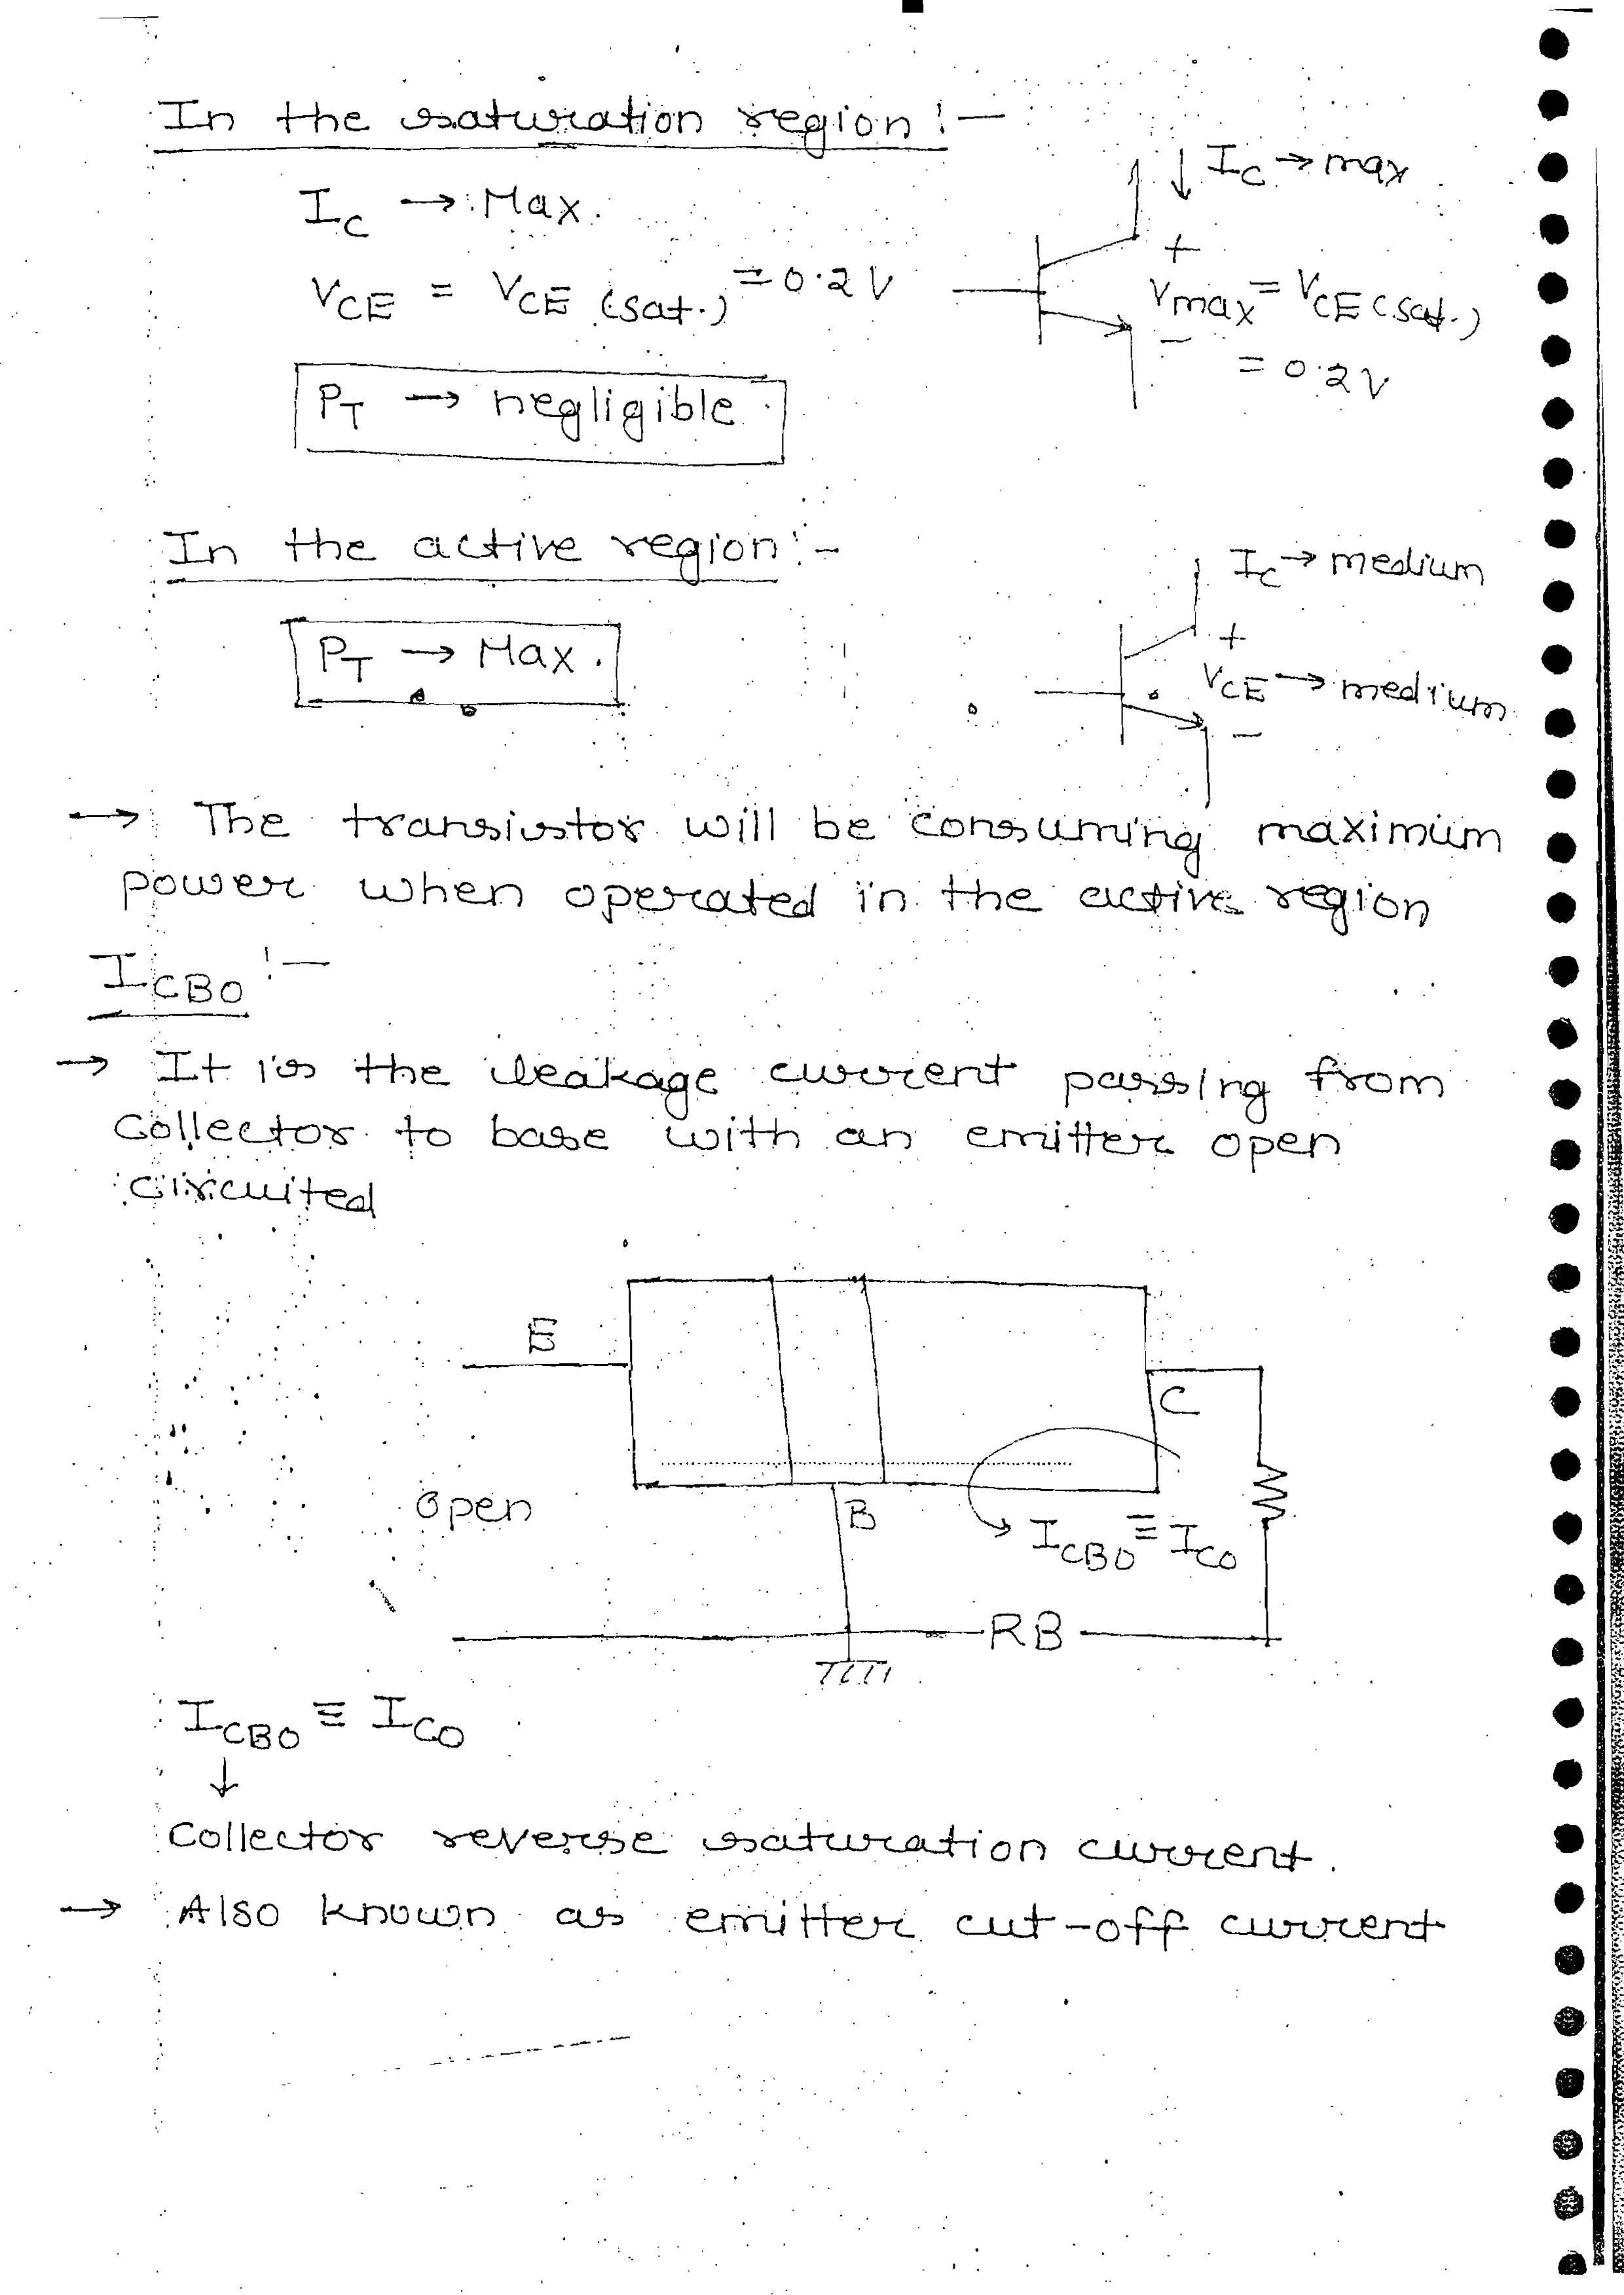 In the saturation region :-
I_C → Max.
V_CE = V_CE (sat.) = 0.2 V
P_T → negligible
↓ I_C → max
+
V_max = V_CE (sat.)
-
= 0.2 V
In the active region :-
P_T → Max.
I_C → medium
+
V_CE → medium
-
→ The transistor will be consuming maximum
power when operated in the active region
I_CBO :-
→ It is the leakage current passing from
Collector to base with an emitter open
circuited
E
C
open
B
I_CBO ≡ I_CO
RB
I_CBO ≡ I_CO
↓
Collector reverse saturation current.
→ Also known as emitter cut-off current